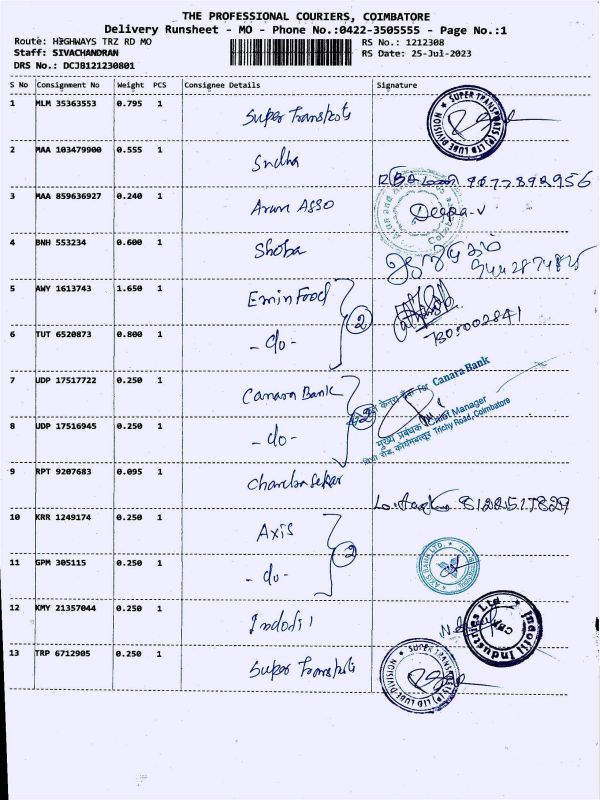 THE PROFESSIONAL COURIERS, COIMBATORE
Delivery Runsheet - MO - Phone No.:0422-3505555 - Page No.:1
Route: HIGHWAYS TRZ RD MO RS No.: 1212308
Staff: SIVACHANDRAN RS Date: 25-Jul-2023
DRS No.: DCJB121230801
S No Consignment No Weight PCS Consignee Details Signature
1 MLM 35363553 0.795 1 Super Transports
SUPER TRANSPORTS (P) LTD LUBE DIVISION
2 MAA 103479900 0.555 1 Sudha
3 MAA 859636927 0.240 1 Arun ASSO Deepa.v
4 BNH 553234 0.600 1 Shoba
5 AWY 1613743 1.650 1 Emin Food
2
7305002841
6 TUT 6520873 0.800 1 - do -
7 UDP 17517722 0.250 1 Canara Bank
केनरा बैंक Canara Bank
मुख्य प्रबंधक Chief Manager
Trichy Road, Coimbatore
8 UDP 17516945 0.250 1 - do - 2
9 RPT 9207683 0.095 1 Chandra Sekar
10 KRR 1249174 0.250 1 Axis
2
AXIS BANK LTD.
11 GPM 305115 0.250 1 - do -
12 KMY 21357044 0.250 1 Indofil
Indofil Industries Ltd CBE
13 TRP 6712905 0.250 1 Super Transports
SUPER TRANSPORTS (P) LTD LUBE DIVISION